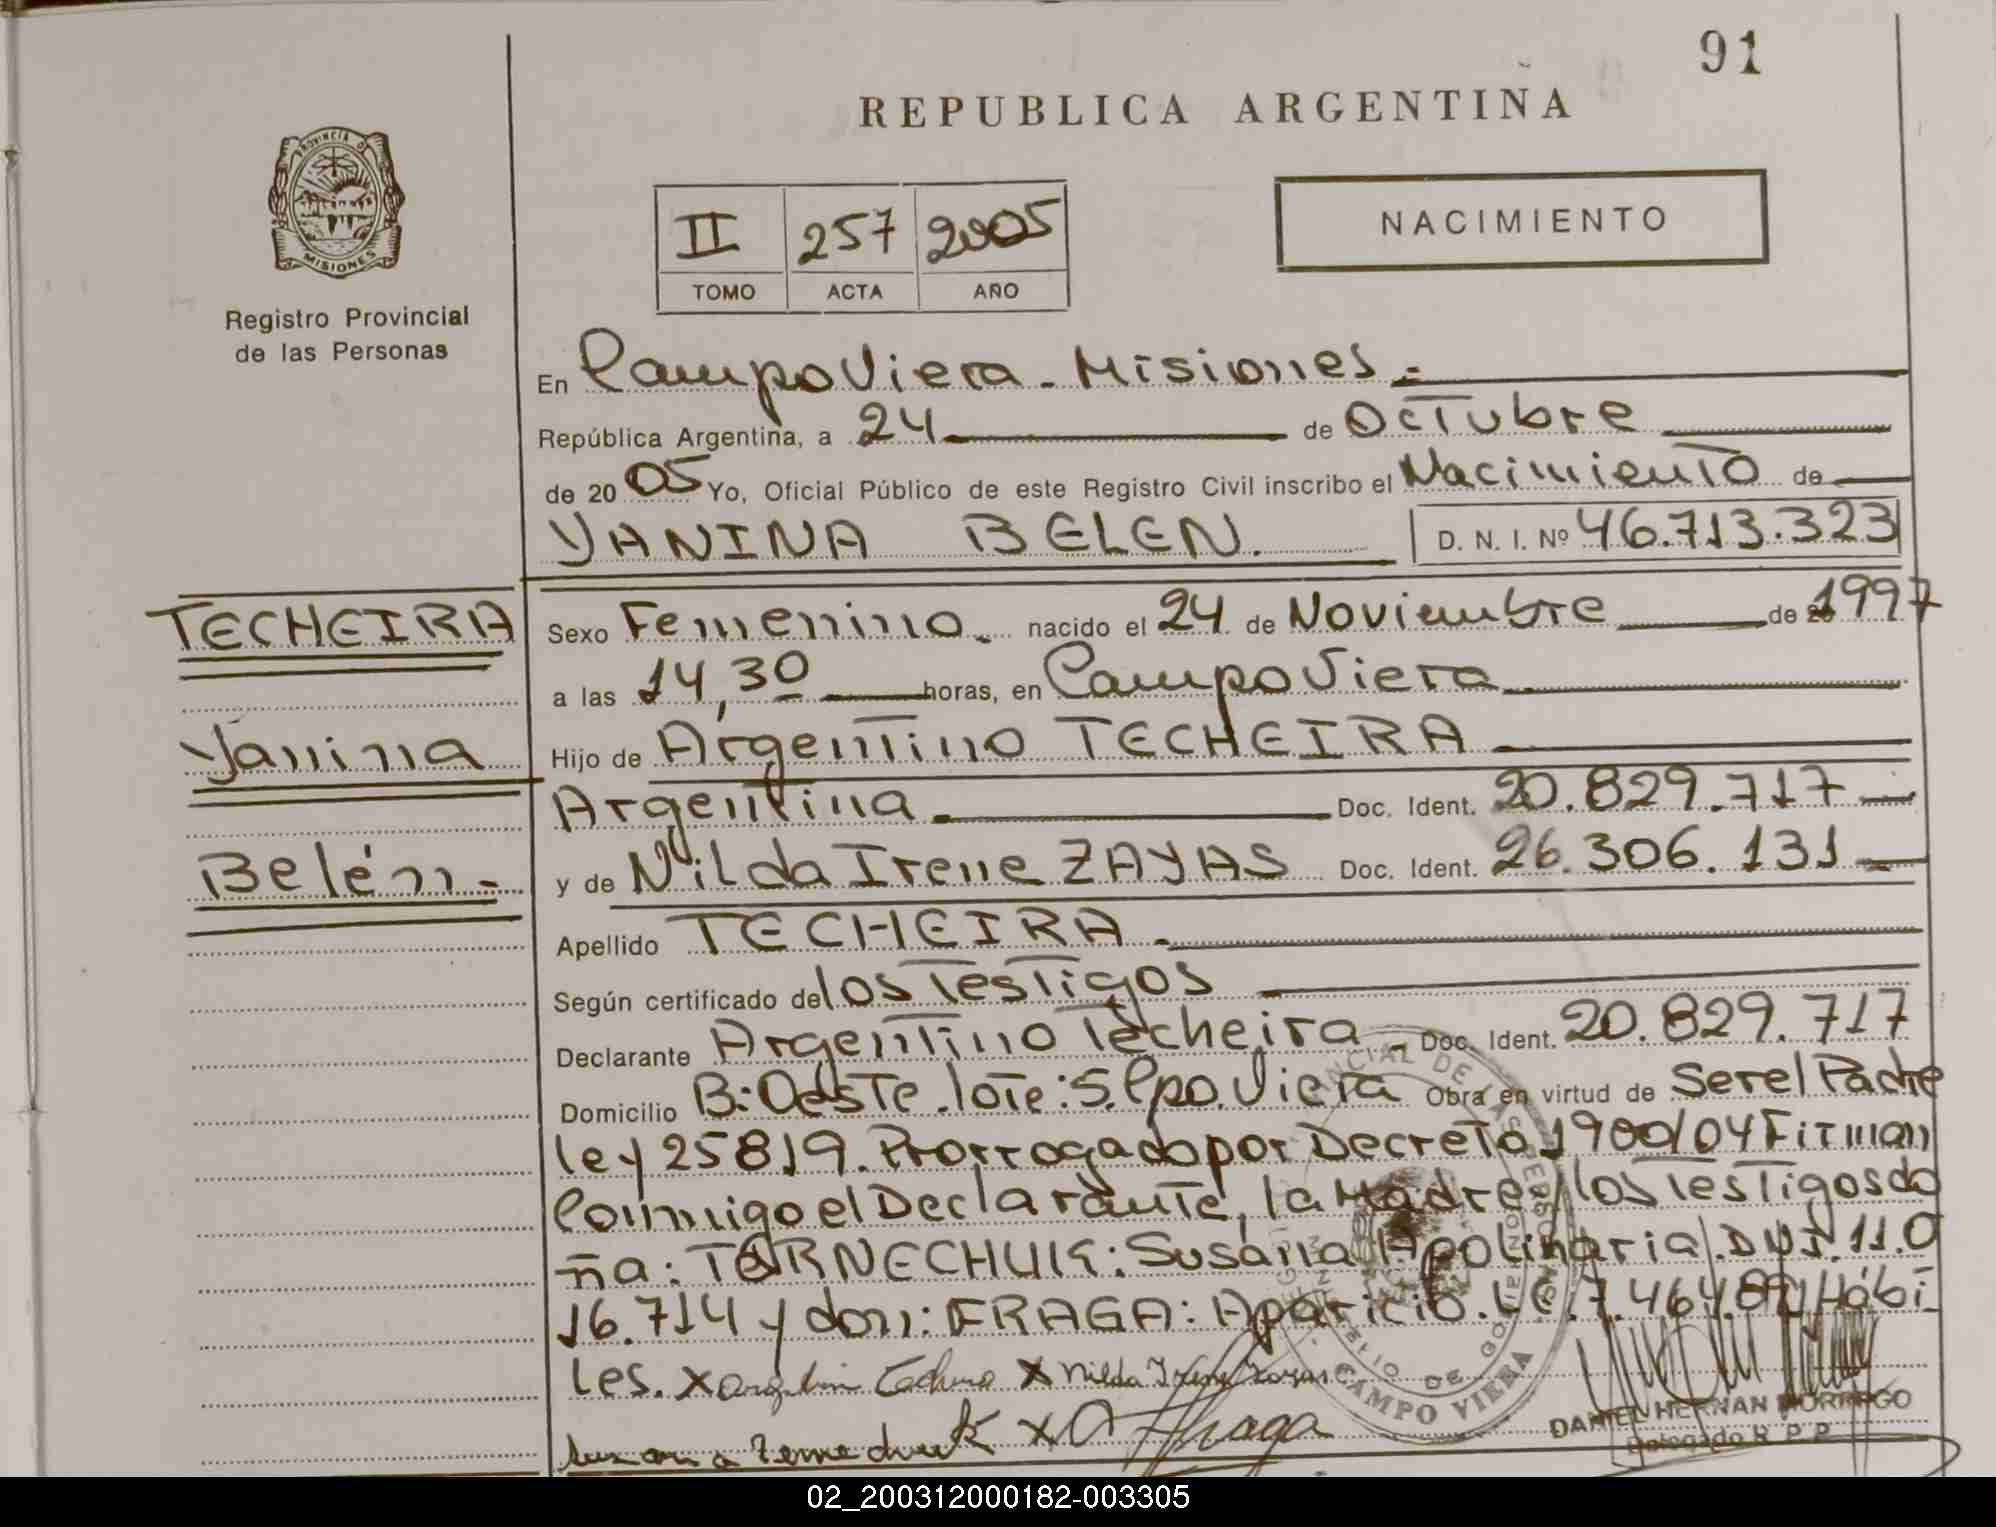 91
REPUBLICA ARGENTINA
PROVINCIA DE
MISIONES
Registro Provincial
de las Personas
II 257 2005
TOMO ACTA AÑO
NACIMIENTO
En Campo Viera - Misiones.-
República Argentina, a 24 de Octubre
de 20 05 Yo, Oficial Público de este Registro Civil inscribo el Nacimiento de
YANINA BELEN. D. N. I. Nº 46.713.323
TECHEIRA
Yanina
Belén.-
Sexo Femenino. nacido el 24 de Noviembre de 1997
a las 14,30 horas, en Campo Viera
Hijo de Argentino TECHEIRA
Argentina Doc. Ident. 20.829.717
y de Nilda Irene ZAYAS Doc. Ident. 26.306.131
Apellido TECHEIRA.
Según certificado de los Testigos
Declarante Argentino Techeira - Doc. Ident. 20.829.717
Domicilio B: Oeste. lote: 5. Cpo. Viera Obra en virtud de Ser el Padre
ley 25819. Prorrogado por Decreto 1900/04 Firman
Conmigo el Declarante, la Madre y los Testigos do
ña: TERNECHUK: Susana Apolinaria. DNI. 11.0
16.714 y don: FRAGA: Aparicio. L.E. 7.464.891 Hábi
les. X X Nilda Irene Zayas
X Fraga
CAMPO VIERA
DANIEL HERNAN MORINIGO
Delegado R. P. P.
02_200312000182-003305